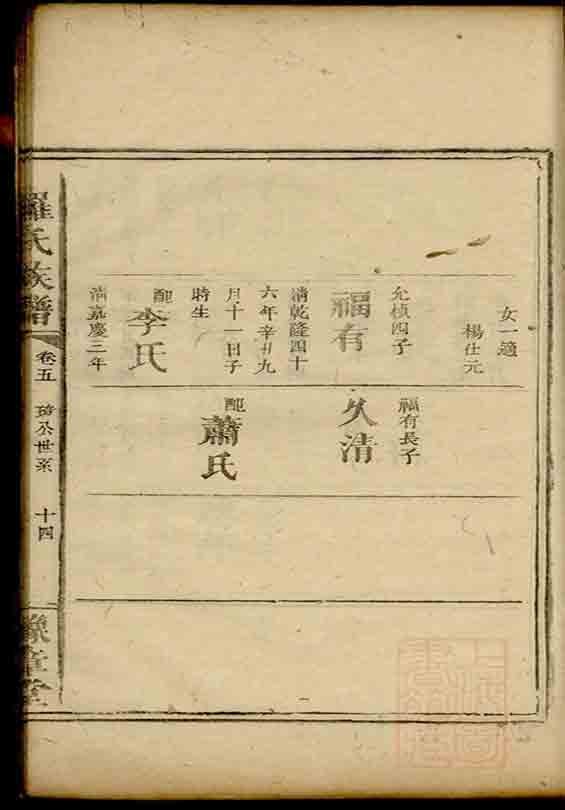 女一適
楊仕元
允楨四子
福有
清乾隆四十
六年辛丑九
月十一日子
時生
配
李氏
清嘉慶三年
福有長子
久清
配
蕭氏
羅氏族譜
卷五
琦公世系
十四
豫章堂